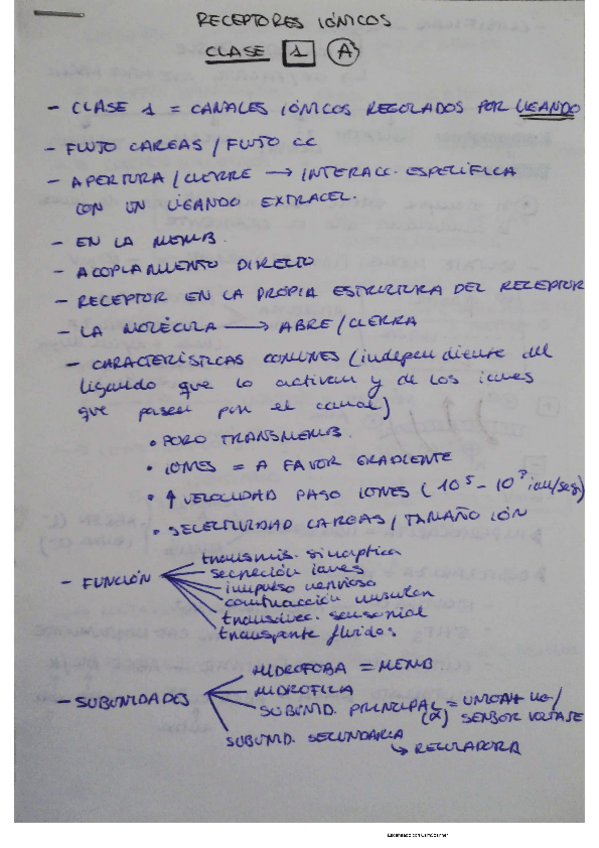 RECEPTORES IÓNICOS
CLASE 1 A
- CLASE 1 = CANALES IÓNICOS REGULADOS POR LIGANDO
- FLUJO CARGAS / FLUJO CC
- APERTURA / CIERRE → INTERACC. ESPECÍFICA
CON UN LIGANDO EXTRACEL.
- EN LA MEMB.
- ACOPLAMIENTO DIRECTO
- RECEPTOR EN LA PROPIA ESTRUCTURA DEL RECEPTOR
- LA MOLÉCULA → ABRE / CIERRA
- CARACTERÍSTICAS COMUNES (independiente del
ligando que lo activan y de los iones
que pasen por el canal)
• PORO TRANSMEMB.
• IONES = A FAVOR GRADIENTE
• ↑ VELOCIDAD PASO IONES (10⁵ - 10⁷ ion/seg)
• SELECTIVIDAD CARGAS / TAMAÑO IÓN
- FUNCIÓN
transmis. sináptica
secreción iones
impulso nervioso
contracción muscular
transducc. sensorial
transporte fluidos
- SUBUNIDADES
HIDRÓFOBA = MEMB
HIDRÓFILA
SUBUNID. PRINCIPAL (α) = UNIÓN LIG / SENSOR VOLTAJE
SUBUNID. SECUNDARIA
↳ REGULADORA
Escaneado con CamScanner